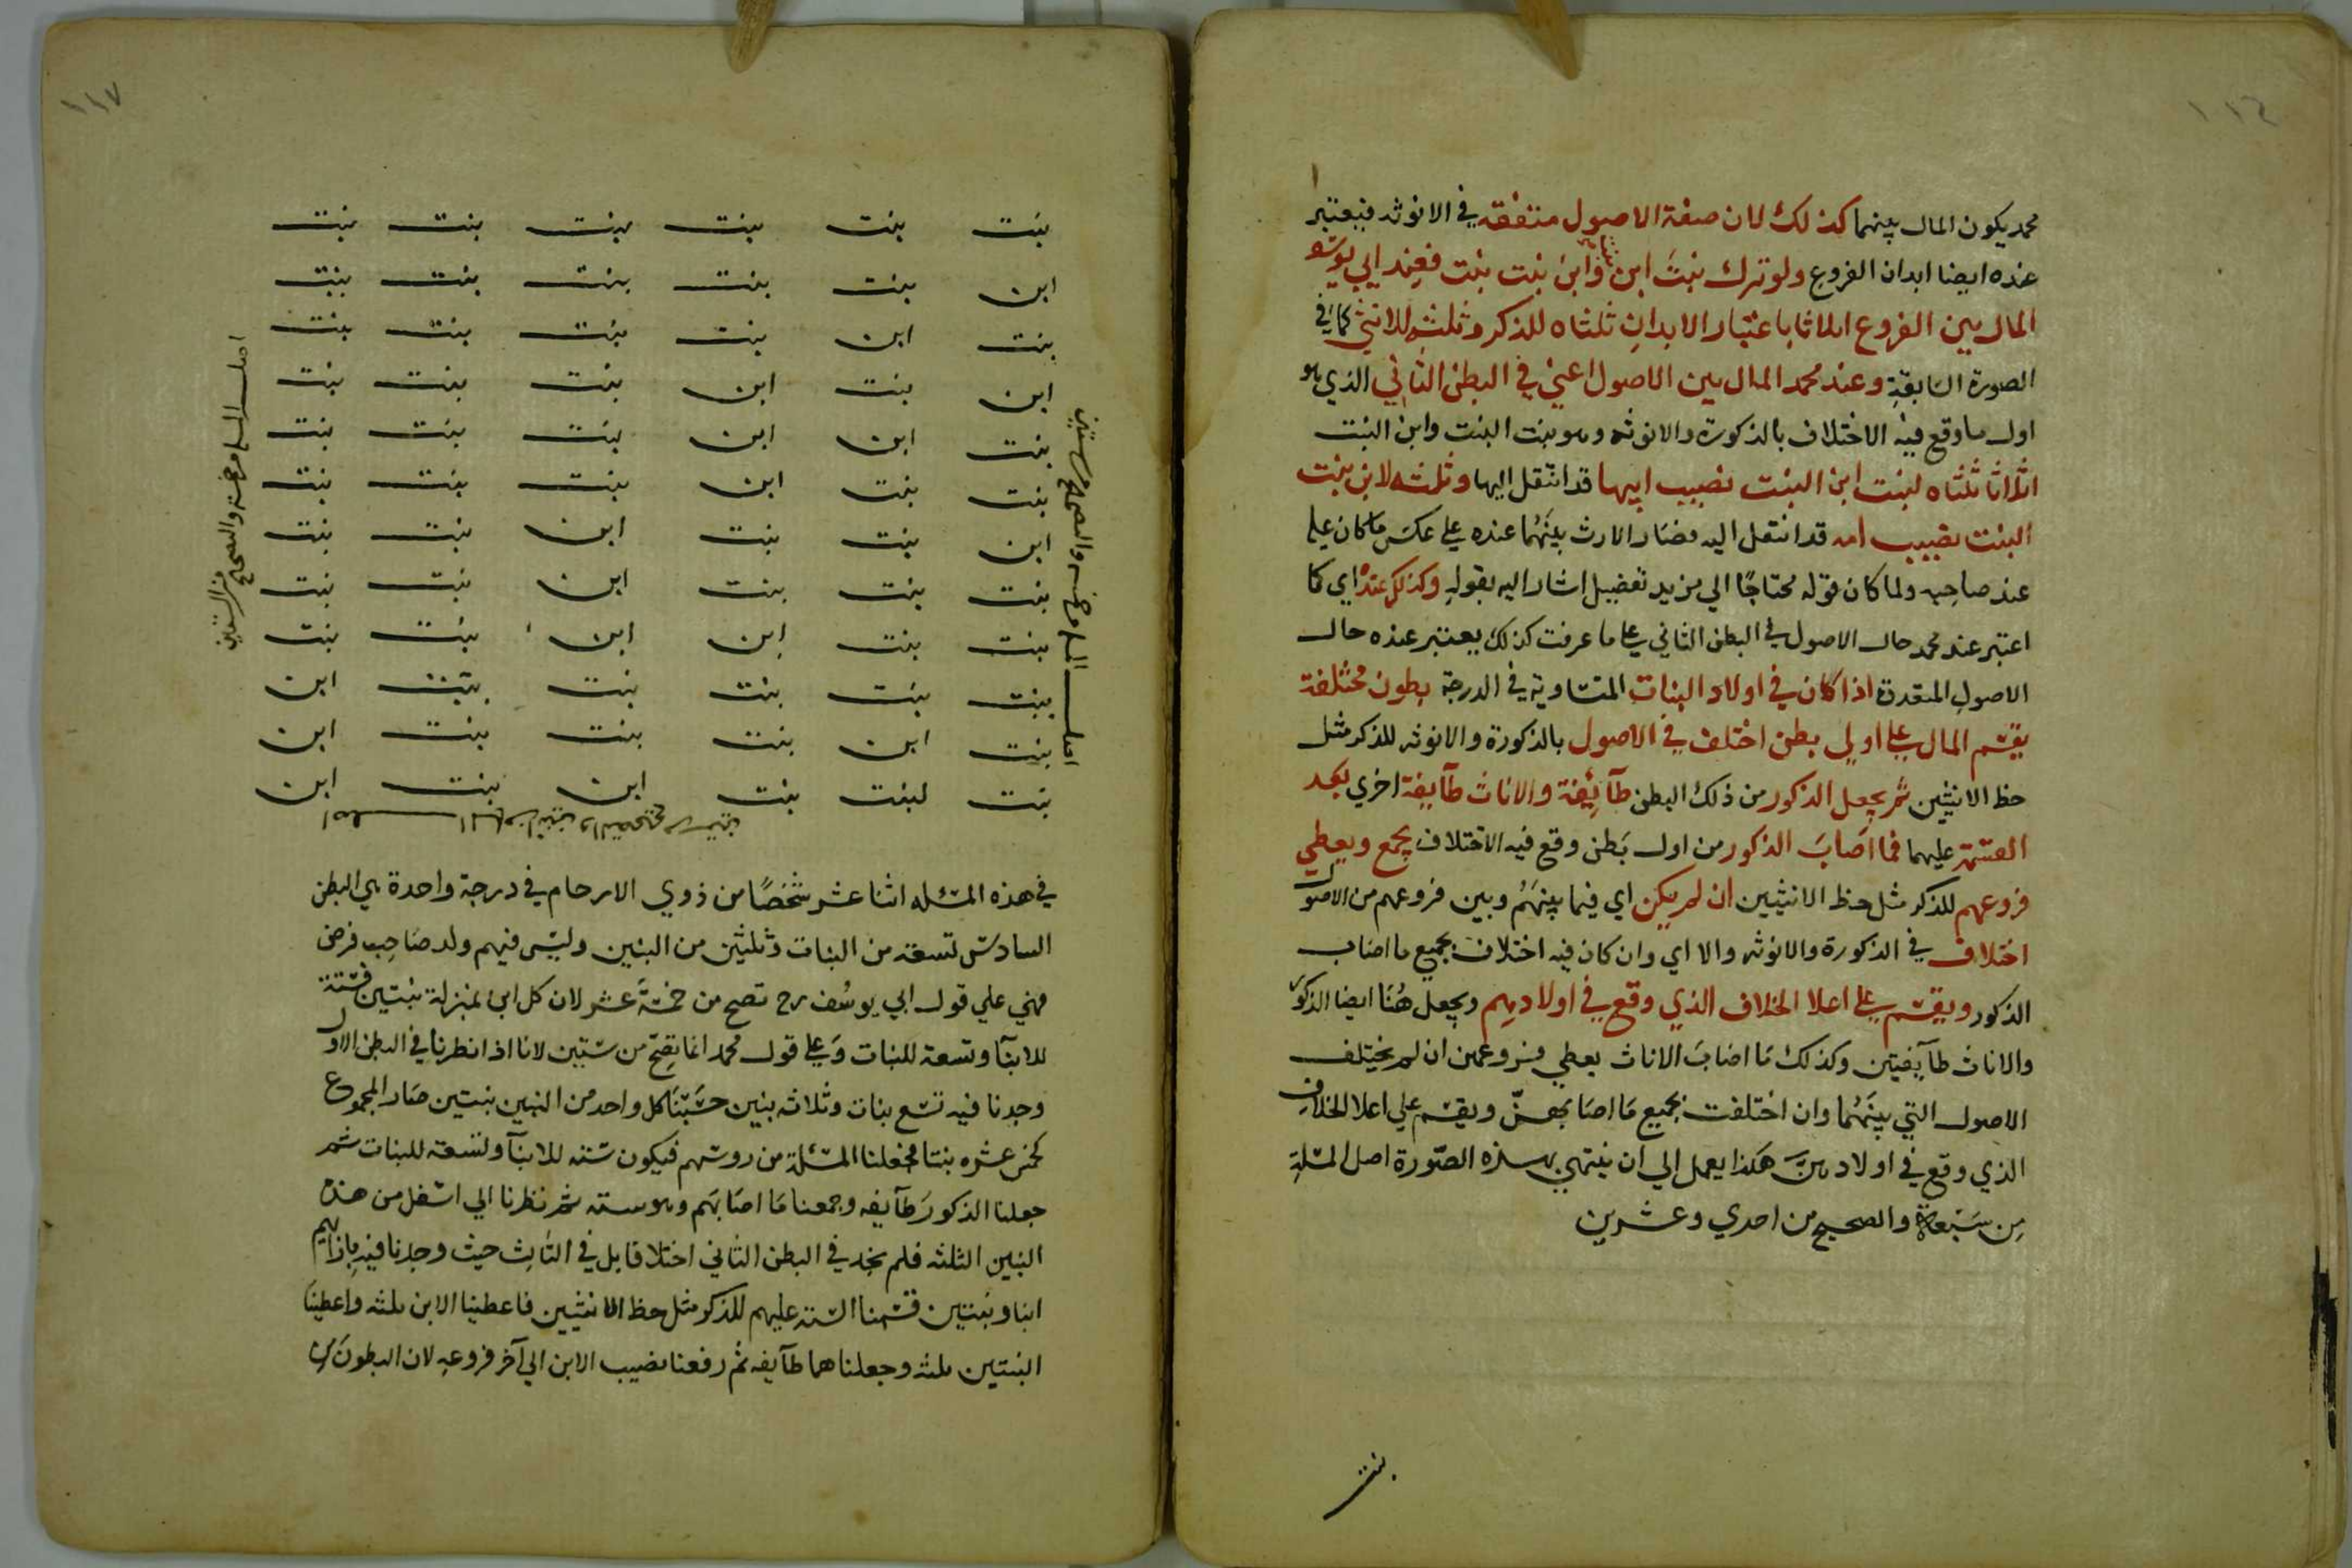 ١١٦
محمد يكون المال بينهما كذلك لان صفة الاصول متفقه في الانوثه فيعتبر
عنده ايضا ابدان الفروع ولو ترك بنت ابن بنت وابن بنت بنت فعند ابي يوسف
المال بين الفروع اثلاثا باعتبار الابدان ثلثاه للذكر وثلثه للانثي كما في
الصورة السابقة وعند محمد المال بين الاصول اعني في البطن الثاني الذي هو
اول ما وقع فيه الاختلاف بالذكورة والانوثه وهو بنت البنت وابن البنت
اثلاثا ثلثاه لبنت ابن البنت نصيب ابيها قد انتقل اليها وثلثه لابن بنت
البنت نصيب امه قد انتقل اليه فصار الارث بينهما عنده علي عكس ما كان علي
عند صاحبه ولما كان قوله محتاجا الي مزيد تفصيل اشار اليه بقوله وكذلك عنده اي كما
اعتبر عند محمد حال الاصول في البطن الثاني علي ما عرفت كذلك يعتبر عنده حال
الاصول المتعددة اذا كان في اولاد البنات المتساوية في الدرجة بطون مختلفة
يقسم المال علي اولي بطن اختلف في الاصول بالذكورة والانوثه للذكر مثل
حظ الانثيين ثم يجعل الذكور من ذلك البطن طآئفة والاناث طآئفة اخري بعد
القسمة عليهما فما اصاب الذكور من اول بطن وقع فيه الاختلاف يجمع ويعطي
فروعهم للذكر مثل حظ الانثيين ان لم يكن اي فيما بينهم وبين فروعهم من الاصول
اختلاف في الذكورة والانوثه والا اي وان كان فيه اختلاف يجمع ما اصاب
الذكور ويقسم علي اعلا الخلاف الذي وقع في اولادهم ويجعل هنا ايضا الذكور
والاناث طآيفتين وكذلك ما اصاب الاناث يعطي فروعهن ان لم يختلف
الاصول التي بينهما وان اختلفت يجمع ما اصابهن ويقسم علي اعلا الخلاف
الذي وقع في اولادهن هكذا يعمل الي ان ينتهي بهذه الصورة اصل المسئلة
من سبعة والصحيح من احدي وعشرين
بنت
١١٧
بنت بنت بنت بنت بنت بنت
ابن بنت بنت بنت بنت بنت
بنت ابن بنت بنت بنت بنت
ابن بنت ابن بنت بنت بنت
بنت ابن ابن بنت بنت بنت
بنت بنت ابن بنت بنت بنت
ابن بنت بنت ابن بنت بنت
بنت بنت بنت ابن بنت بنت
بنت بنت ابن ابن بنت بنت
بنت بنت بنت بنت بنت ابن
بنت ابن بنت بنت بنت ابن
بنت لبنت بنت ابن بنت ابن
في هذه المسئله اثنا عشر شخصا من ذوي الارحام في درجة واحدة هي البطن
السادس تسعة من البنات وثلثين من البنين وليس فيهم ولد صاحب فرض
فهي علي قول ابي يوسف رح تصح من خمسة عشر لان كل ابن بمنزلة بنتين فستة
للابنآ وتسعة للبنات وعلي قول محمد انما تصح من ستين لانا اذا نظرنا في البطن الاول
وجدنا فيه تسع بنات وثلاثه بنين حسبنا كل واحد من البنين بنتين صار المجموع
كخمس عشره بنتا فجعلنا المسئلة من روسهم فيكون سته للابنآ وتسعة للبنات ثم
جعلنا الذكور طآيفه وجمعنا ما اصابهم وهو سته ثم نظرنا الي اسفل من هذه
البنين الثلثه فلم نجد في البطن الثاني اختلافا بل في الثالث حيث وجدنا فيه بازآئهم
ابنا وبنتين قسمنا السته عليهم للذكر مثل حظ الانثيين فاعطينا الابن ثلثه واعطينا
البنتين ثلثه وجعلناهما طآيفه ثم رفعنا نصيب الابن الي آخر فروعه لان البطون